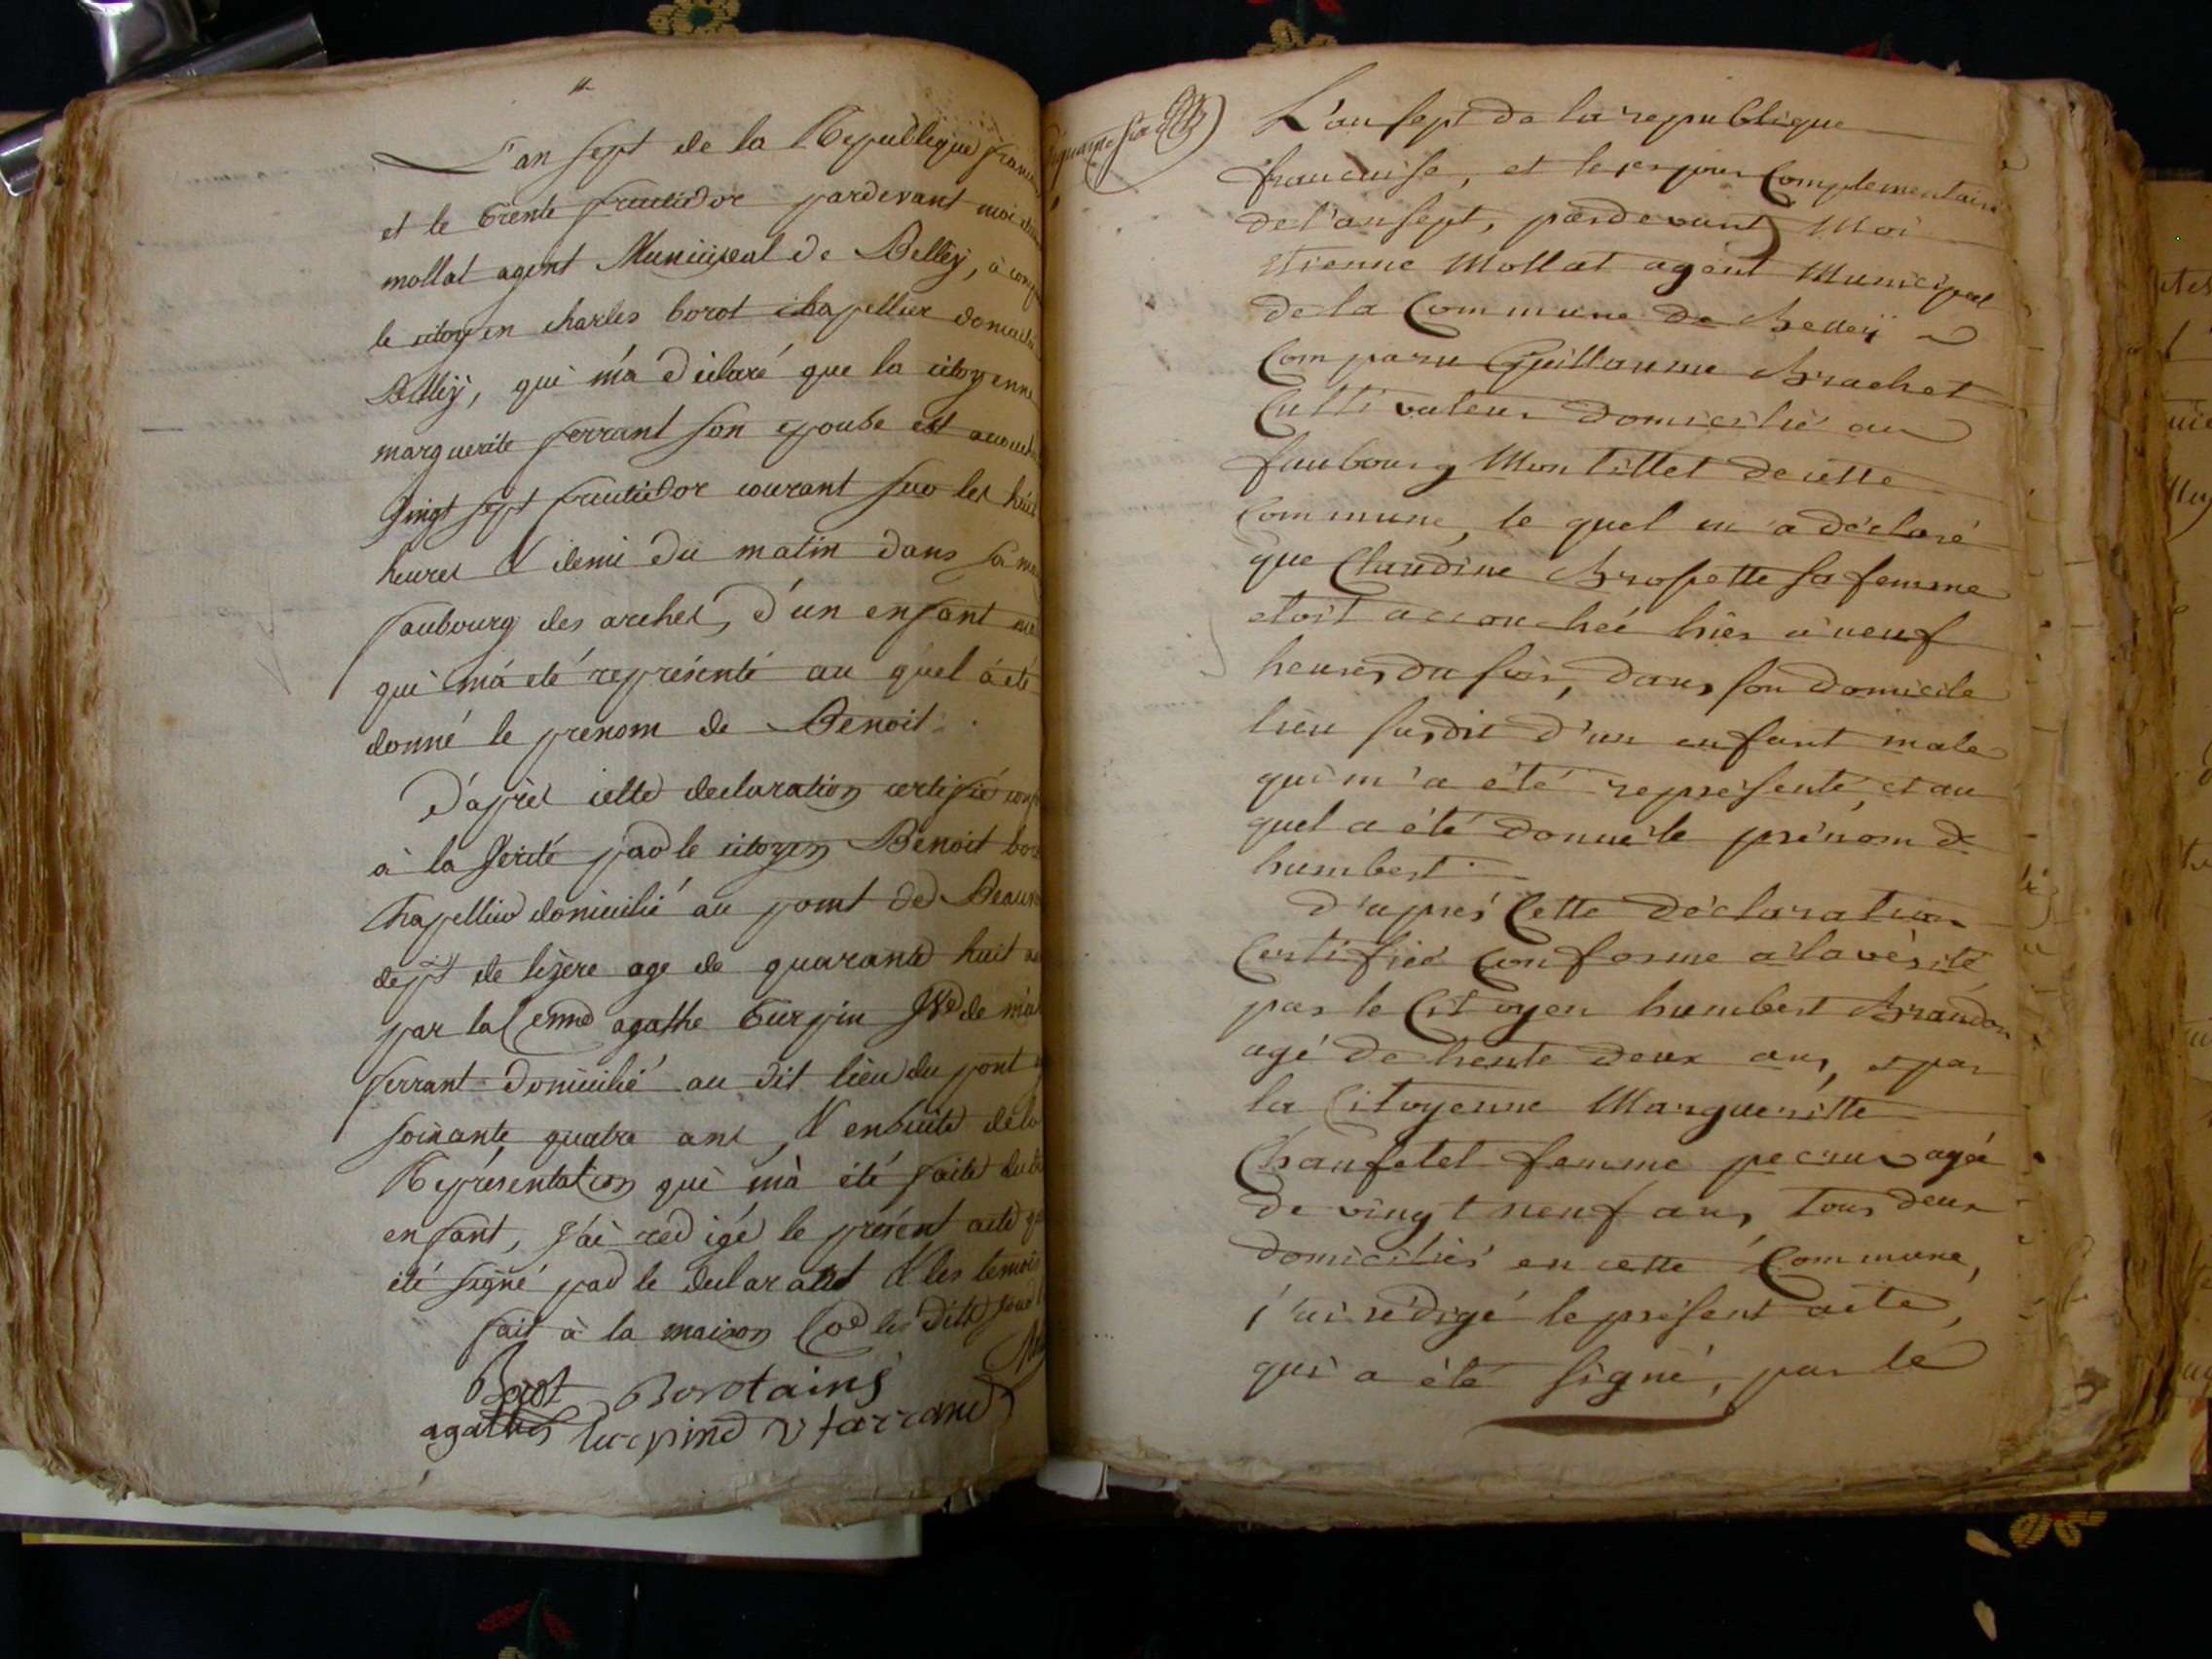 L'an sept de la Republique
et le trente fructidor pardevant moi
mollat agent Municipal de Belley, à
le citoyen charles borot chapellier
Belley, qui m'a déclaré que la citoyenne
marguerite ferrant son epouse est
vingt sept fructidor courant sur les huit
heures & demi du matin dans sa
faubourg des arches, d'un enfant
qui m'a eté représenté au quel à été
donné le prenom de Benoit.
D'après cette declaration certifié
à la verité par le citoyen Benoit
chapellier domicilié au pont de
dept. de lizere age de quarante huit
par la Cenne agathe turpin Ve de
ferrant domicilié au dit lieu du pont
soixante quatre ans, & ensuite de la
Représentation qui m'à été faite
enfant, j'ai redigé le présent acte
été signé par le declarant & les
fait à la maison Coe les dits
Borot Borot
agathe turpine v farrand
L'an sept de la republique
francaise, et le 1er jour Complementaire
de l'an sept, pardevant Moi
Etienne Mollat agent Municipal
de la Commune de Belleÿ a
Comparu Guillaume Brachet
Cultivateur domicilié au
faubourg Montillet de cette
Commune, le quel m'a déclaré
que Claudine Brossette sa femme
etoit accouchée hier a neuf
heures du soir, dans son domicile
lieu susdit d'un enfant male
qui m'a été représenté, et au
quel a été donné le prénom de
humbert.
d'après Cette déclaration
Certifiée Conforme a la vérité
par le Citoyen humbert Brandon
agé de trente deux ans, et par
la Citoyenne Margueritte
femme agée
de vingt neuf ans, tous deux
domiciliés en cette Commune,
j'ai rédigé le présent acte,
qui a été signé, par le